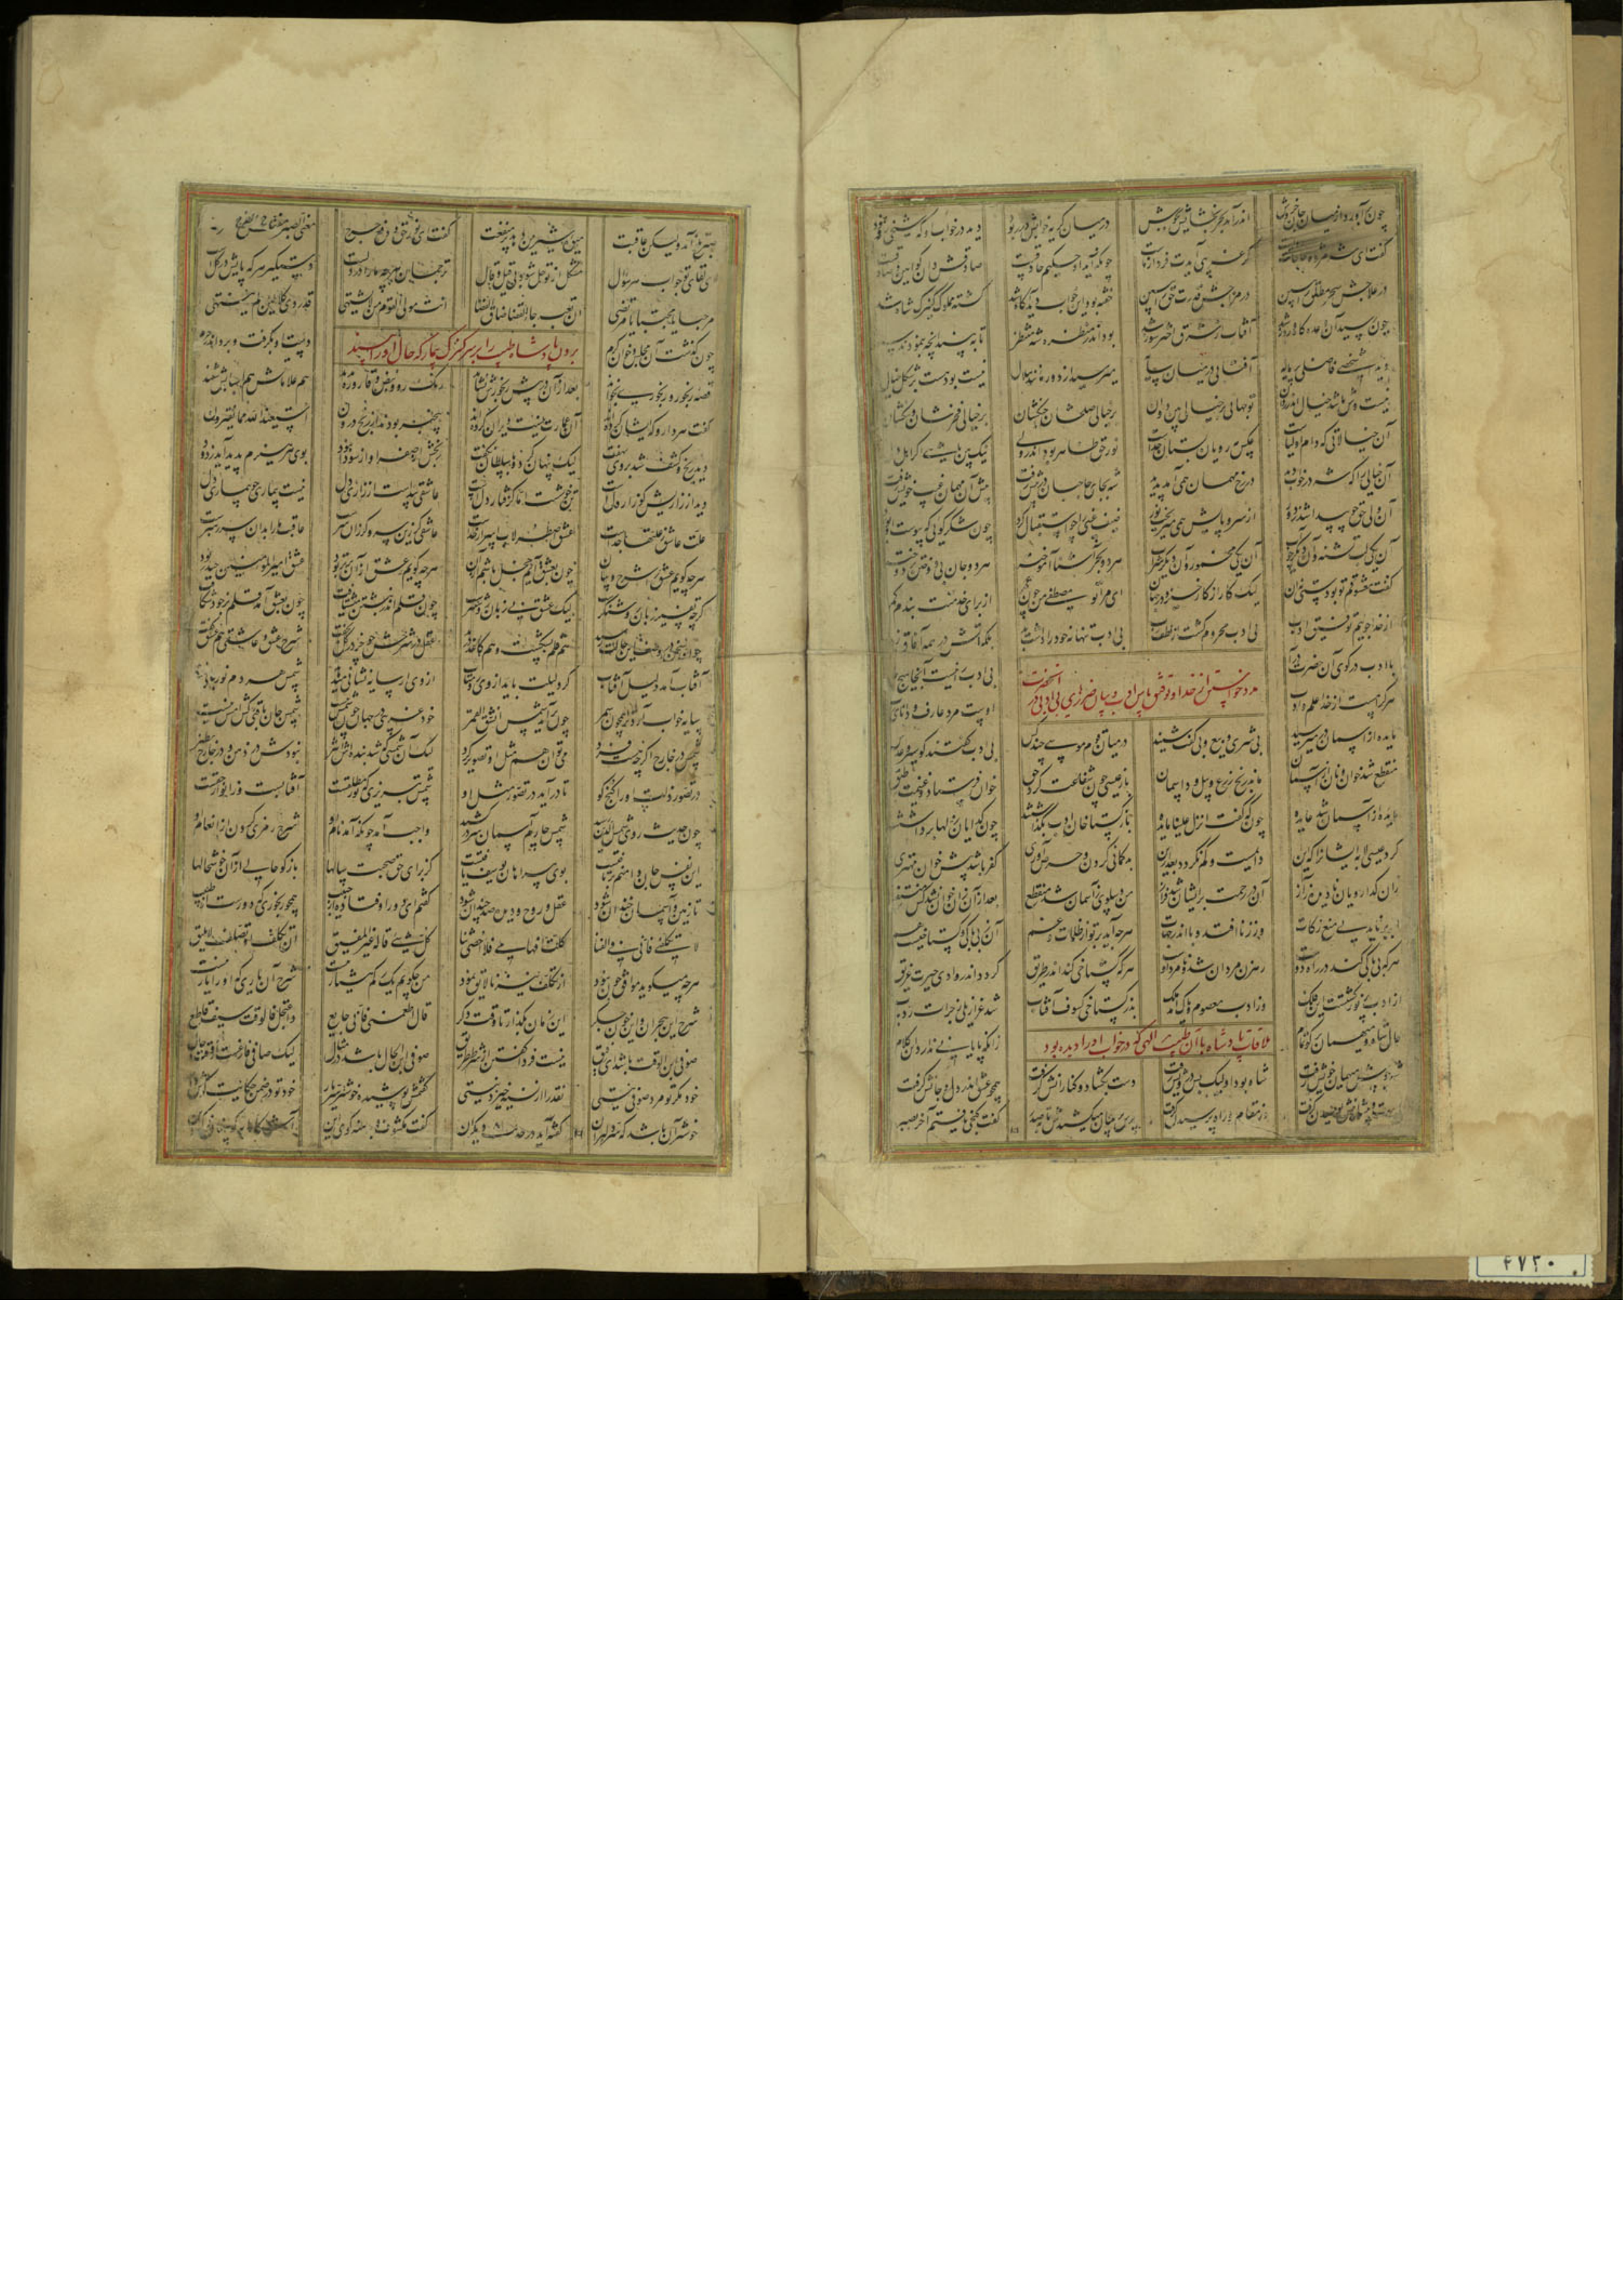 چون برآورد از میان جان خروش اندر آمد بحر بخشایش بجوش در میان گریه خوابش در ربود دید در خواب او که شیخی رو نمود
گفت ای شه مژده حاجاتت رواست گر غریبی آیدت فردا ز ماست چونکه آید او حکیم حاذقست صادقش دان کو امین و صادقست
در علاجش سحر مطلق را ببین در مزاجش قدرت حق را ببین خفته بود این خواب دید آگاه شد گشته مملوک کنیزک شاه شد
چون رسید آن وعده گاه و روز شد آفتاب از شرق اختر سوز شد بود اندر منظره شه منتظر تا ببیند آنچه بنمودند سر
دید شخصی فاضلی پر مایه آفتابی در میان سایه میرسید از دور مانند هلال نیست بود و هست بر شکل خیال
نیست وش باشد خیال اندر روان تو جهانی بر خیالی بین روان بر خیالی صلحشان و جنگشان بر خیالی فخرشان و ننگشان
آن خیالاتی که دام اولیاست عکس مه رویان بستان خداست نور حق ظاهر بود اندر ولی نیک بین باشی اگر اهل دلی
آن خیالی را که شه در خواب دید در رخ مهمان همی آمد پدید شه بجای حاجبان در پیش رفت پیش آن مهمان غیب خویش رفت
آن ولی حق چو پیدا شد ز دور از سر و پایش همی میریخت نور ضیف غیبی را چو استقبال کرد چون شکر گویی که پیوست او بورد
آن یکی لب تشنه وان دیگر چو آب آن یکی مخمور و آن دیگر شراب هر دو بحری آشنا آموخته هر دو جان بی دوختن بر دوخته
گفت معشوقم تو بودستی نه آن لیک کار از کار خیزد در جهان ای مرا تو مصطفی من چون عمر از برای خدمتت بندم کمر
از خدا جوییم توفیق ادب بی ادب محروم گشت از لطف رب بی ادب تنها نه خود را داشت بد بلکه آتش در همه آفاق زد
در خواستن از خداوند توفیق پاس ادب و بیان ضررهای بی ادبی در آنحضرت
مایده از آسمان در میرسید بی شری و بیع و بی گفت و شنید در میان قوم موسی چند کس بی ادب گفتند کو سیر و عدس
منقطع شد خوان و نان از آسمان ماند رنج زرع و بیل و داسمان باز عیسی چون شفاعت کرد حق خوان فرستاد و غنیمت بر طبق
مایده از آسمان شد عایده چونکه گفت انزل علینا مایده باز گستاخان ادب بگذاشتند چون گدایان زله ها برداشتند
کرد عیسی لابه ایشان را که این دایمست و کم نگردد از زمین بدگمانی کردن و حرص آوری کفر باشد پیش خوان مهتری
زان گدا رویان نادیده ز آز آن در رحمت بر ایشان شد فراز من و سلوی ز آسمان شد منقطع بعد از آن زان خوان نشد کس منتفع
ابر بر ناید پی منع زکات وز زنا افتد وبا اندر جهات هر چه آید بر تو از ظلمات و غم آن ز بی باکی و گستاخیست هم
هر که بی باکی کند در راه دوست رهزن مردان شد و نامرد اوست هر که گستاخی کند اندر طریق گردد اندر وادی حیرت غریق
از ادب پر نور گشتست این فلک وز ادب معصوم و پاک آمد ملک بد ز گستاخی کسوف آفتاب شد عزازیلی ز جرأت رد باب
حال شاه و میهمان گو تمام زانکه پایانی ندارد این کلام
ملاقات پادشاه با آن طبیب الهی که در خواب او را دیده بود
شه چو پیش میهمان خویش رفت شاه بود او لیک بس درویش رفت دست بگشاد و کنارانش گرفت همچو عشق اندر دل و جانش گرفت
دست و پیشانیش بوسیدن گرفت از مقام و راه پرسیدن گرفت پرس پرسان میکشیدش تا بصدر گفت گنجی یافتم آخر بصبر
صبر تلخ آمد ولیکن عاقبت میوه شیرین دهد پر منفعت گفت ای نور حق و دفع حرج معنی الصبر مفتاح الفرج
ای لقای تو جواب هر سؤال مشکل از تو حل شود بی قیل و قال ترجمان هر چه ما را در دلست دستگیر هر که پایش در گلست
مرحبا یا مجتبی یا مرتضی ان تغب جاء القضا ضاق الفضا انت مولی القوم من لا یشتهی قد ردی کلا لئن لم ینته
چون گذشت آن مجلس و خوان کرم دست او بگرفت و برد اندر حرم
بردن پادشاه طبیب را بر سر کنیزک بیمار که حال او را ببیند
قصه رنجور و رنجوری بخواند بعد از آن در پیش رنجورش نشاند رنگ رو و نبض و قاروره بدید هم علاماتش هم اسبابش شنید
گفت هر دارو که ایشان کرده اند آن عمارت نیست ویران کرده اند بیخبر بودند از رنج درون استعیذ الله مما یفترون
دید رنج و کشف شد بر وی نهفت لیک پنهان کرد و با سلطان نگفت رنجش از صفرا و از سودا نبود بوی هر هیزم پدید آید ز دود
دید از زاریش کو زار دلست تن خوشست اما گرفتار دلست عاشقی پیداست از زاری دل نیست بیماری چو بیماری دل
علت عاشق ز علتها جداست عشق اصطرلاب اسرار خداست عاشقی گر زین سر و گر زان سرست عاقبت ما را بدان سر رهبرست
هر چه گویم عشق را شرح و بیان چون بعشق آیم خجل باشم از آن
گرچه تفسیر زبان روشنگرست لیک عشق بی زبان روشنترست چون قلم اندر نوشتن میشتافت چون بعشق آمد قلم بر خود شکافت
عقل در شرحش چو خر در گل بخفت شرح عشق و عاشقی هم عشق گفت
آفتاب آمد دلیل آفتاب گر دلیلت باید از وی رو متاب از وی ار سایه نشانی میدهد شمس هر دم نور جانی میدهد
سایه خواب آرد ترا همچون سمر چون برآید شمس انشق القمر خود غریبی در جهان چون شمس نیست شمس جان باقیی کش امس نیست
شمس در خارج اگرچه هست فرد می توان هم مثل او تصویر کرد لیک آن شمسی که شد بندش اثیر نبودش در ذهن و در خارج نظیر
در تصور ذات او را گنج کو تا در آید در تصور مثل او شمس تبریزی که نور مطلقست آفتابست و ز انوار حقست
چون حدیث روی شمس الدین رسید شمس چارم آسمان سر در کشید واجب آمد چونکه آمد نام او شرح رمزی کردن از انعام او
این نفس جان دامنم بر تافتست بوی پیراهان یوسف یافتست کز برای حق صحبت سالها باز گو حالی از آن خوش حالها
تا زمین و آسمان خندان شود عقل و روح و دیده صد چندان شود گفتم ای دور اوفتاده از حبیب همچو رنجوری که دورست از طبیب
لا تکلفنی فانی فی الفنا کلت افهامی فلا احصی ثنا کل شیء قاله غیر المفیق ان تکلف او تصلف لا یلیق
هر چه میگوید موافق چون نبود چون تکلف نیک نالایق نمود من چه گویم یک رگم هشیار نیست شرح آن یاری که او را یار نیست
شرح این هجران و این خون جگر این زمان بگذار تا وقت دگر قال اطعمنی فانی جایع واعتجل فالوقت سیف قاطع
صوفی ابن الوقت باشد ای رفیق نیست فردا گفتن از شرط طریق صوفی ابن الحال باشد در مثال
خود مگر تو مرد صوفی نیستی نقد را از نسیه خیزد نیستی گفتمش پوشیده خوشتر سر یار خود تو در ضمن حکایت گوش دار
خوشتر آن باشد که سر دلبران گفته آید در حدیث دیگران گفت مکشوف و برهنه گوی این
۴۷۳۰